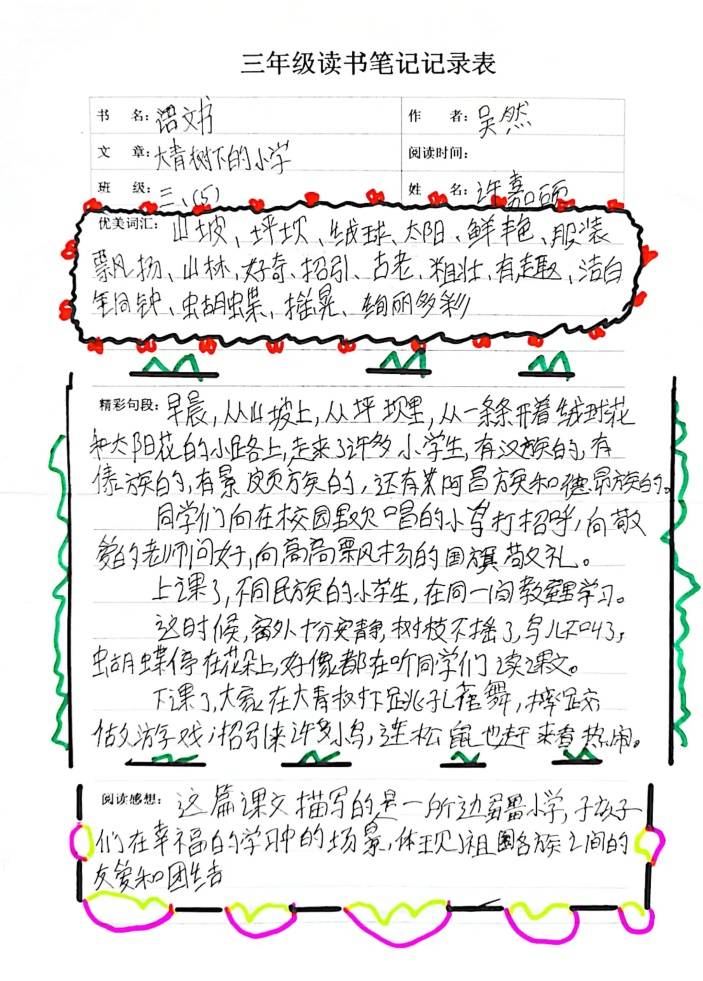 三年级读书笔记记录表
书 名：语文书 作 者：吴然
文 章：大青树下的小学 阅读时间：
班 级：三、(5) 姓 名：许嘉硕
优美词汇：山坡、坪坝、绒球、太阳、鲜艳、服装
飘扬、山林、好奇、招引、古老、粗壮、有趣、洁白
铜钟、蝴蝶、摇晃、绚丽多彩
精彩句段：早晨，从山坡上，从坪坝里，从一条条开着绒球花
和太阳花的小路上，走来了许多小学生，有汉族的，有
傣族的，有景颇族的，还有阿昌族和德昂族的。
同学们向在校园里欢唱的小鸟打招呼，向敬
爱的老师问好，向高高飘扬的国旗敬礼。
上课了，不同民族的小学生，在同一间教室里学习。
这时候，窗外十分安静，树枝不摇了，鸟儿不叫了，
蝴蝶停在花朵上，好像都在听同学们读课文。
下课了，大家在大青树下跳孔雀舞，摔跤
做游戏，招引来许多小鸟，连松鼠也赶来看热闹。
阅读感想：这篇课文描写的是一所边疆小学，子孩子
们在幸福的学习中的场景，体现了祖国各族之间的
友爱和团结